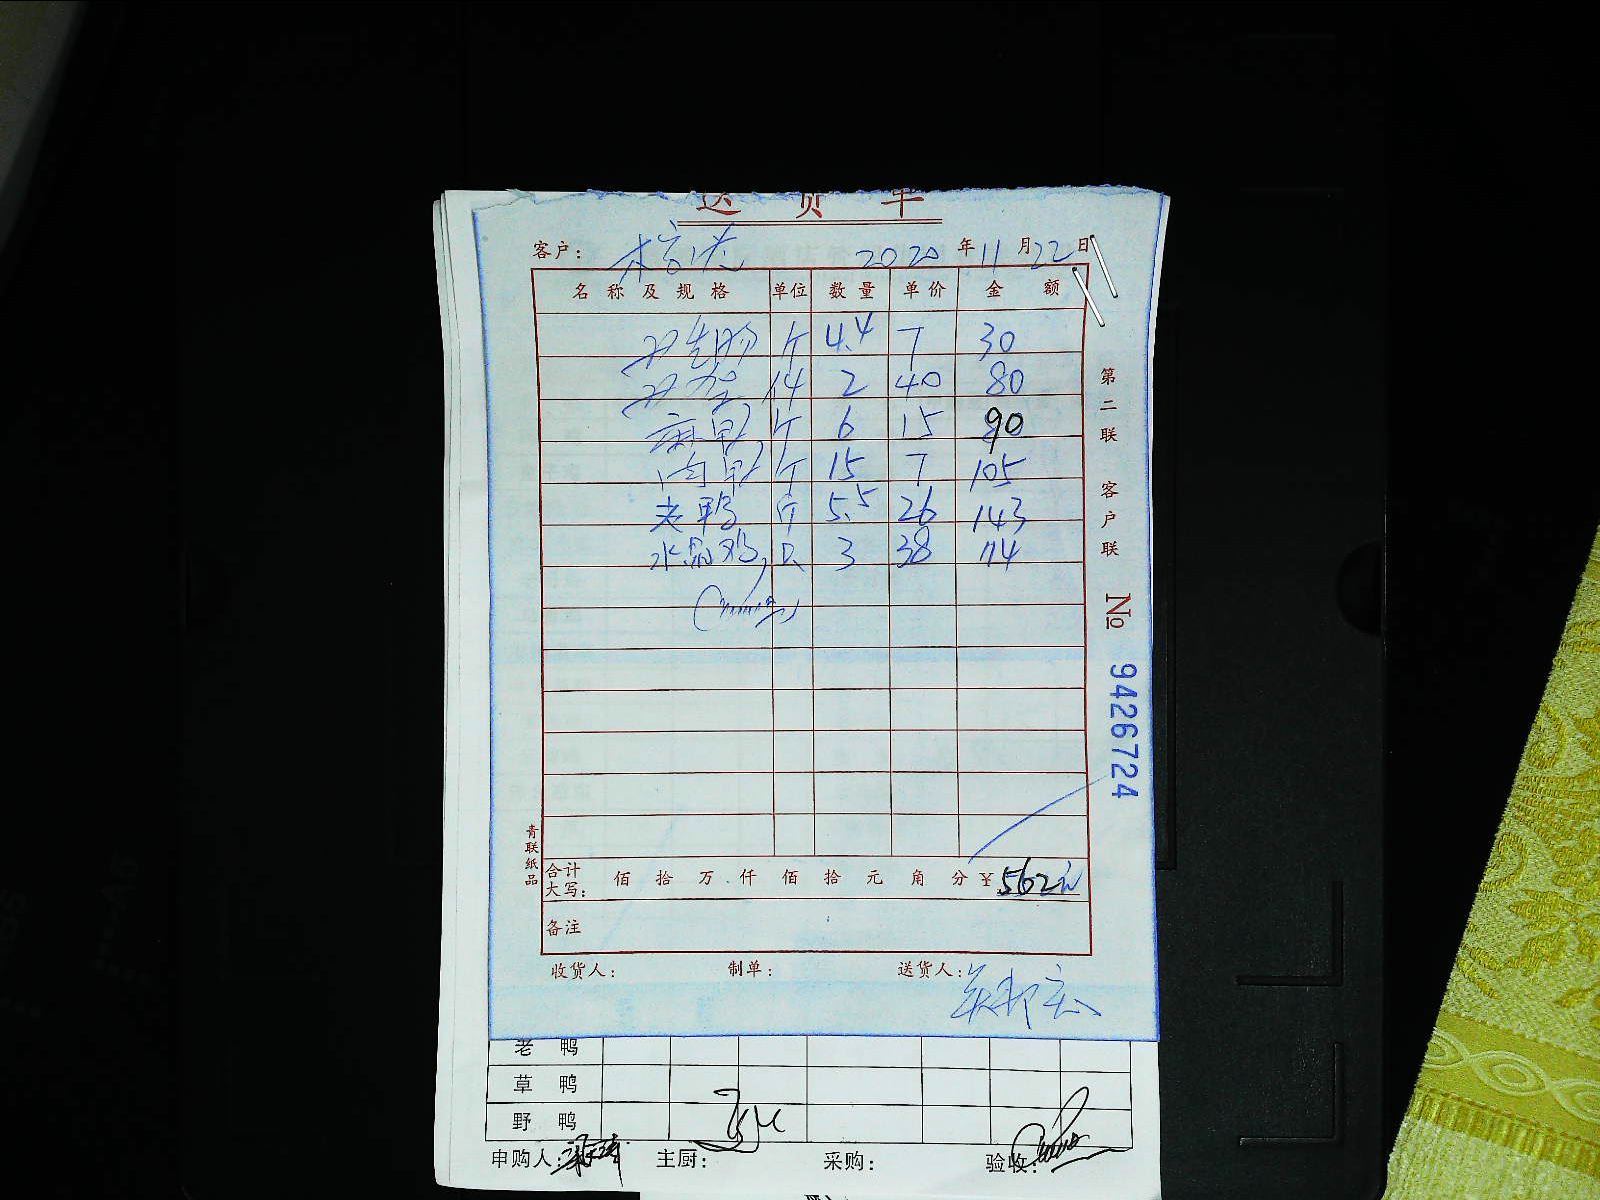 送货单
客户： 2020年11月22日
名称及规格 单位 数量 单价 金额
斤 4.4 7 30
件 2 40 80
斤 6 15 90
肉 斤 15 7 105
老鸭 斤 5.5 26 143
水晶鸡 只 3 38 114
合计大写： 佰 拾 万 仟 佰 拾 元 角 分 ¥562元
备注
收货人： 制单： 送货人：
第二联 客户联
No 9426724
青联纸品
老鸭
草鸭
野鸭
申购人： 主厨： 采购： 验收：